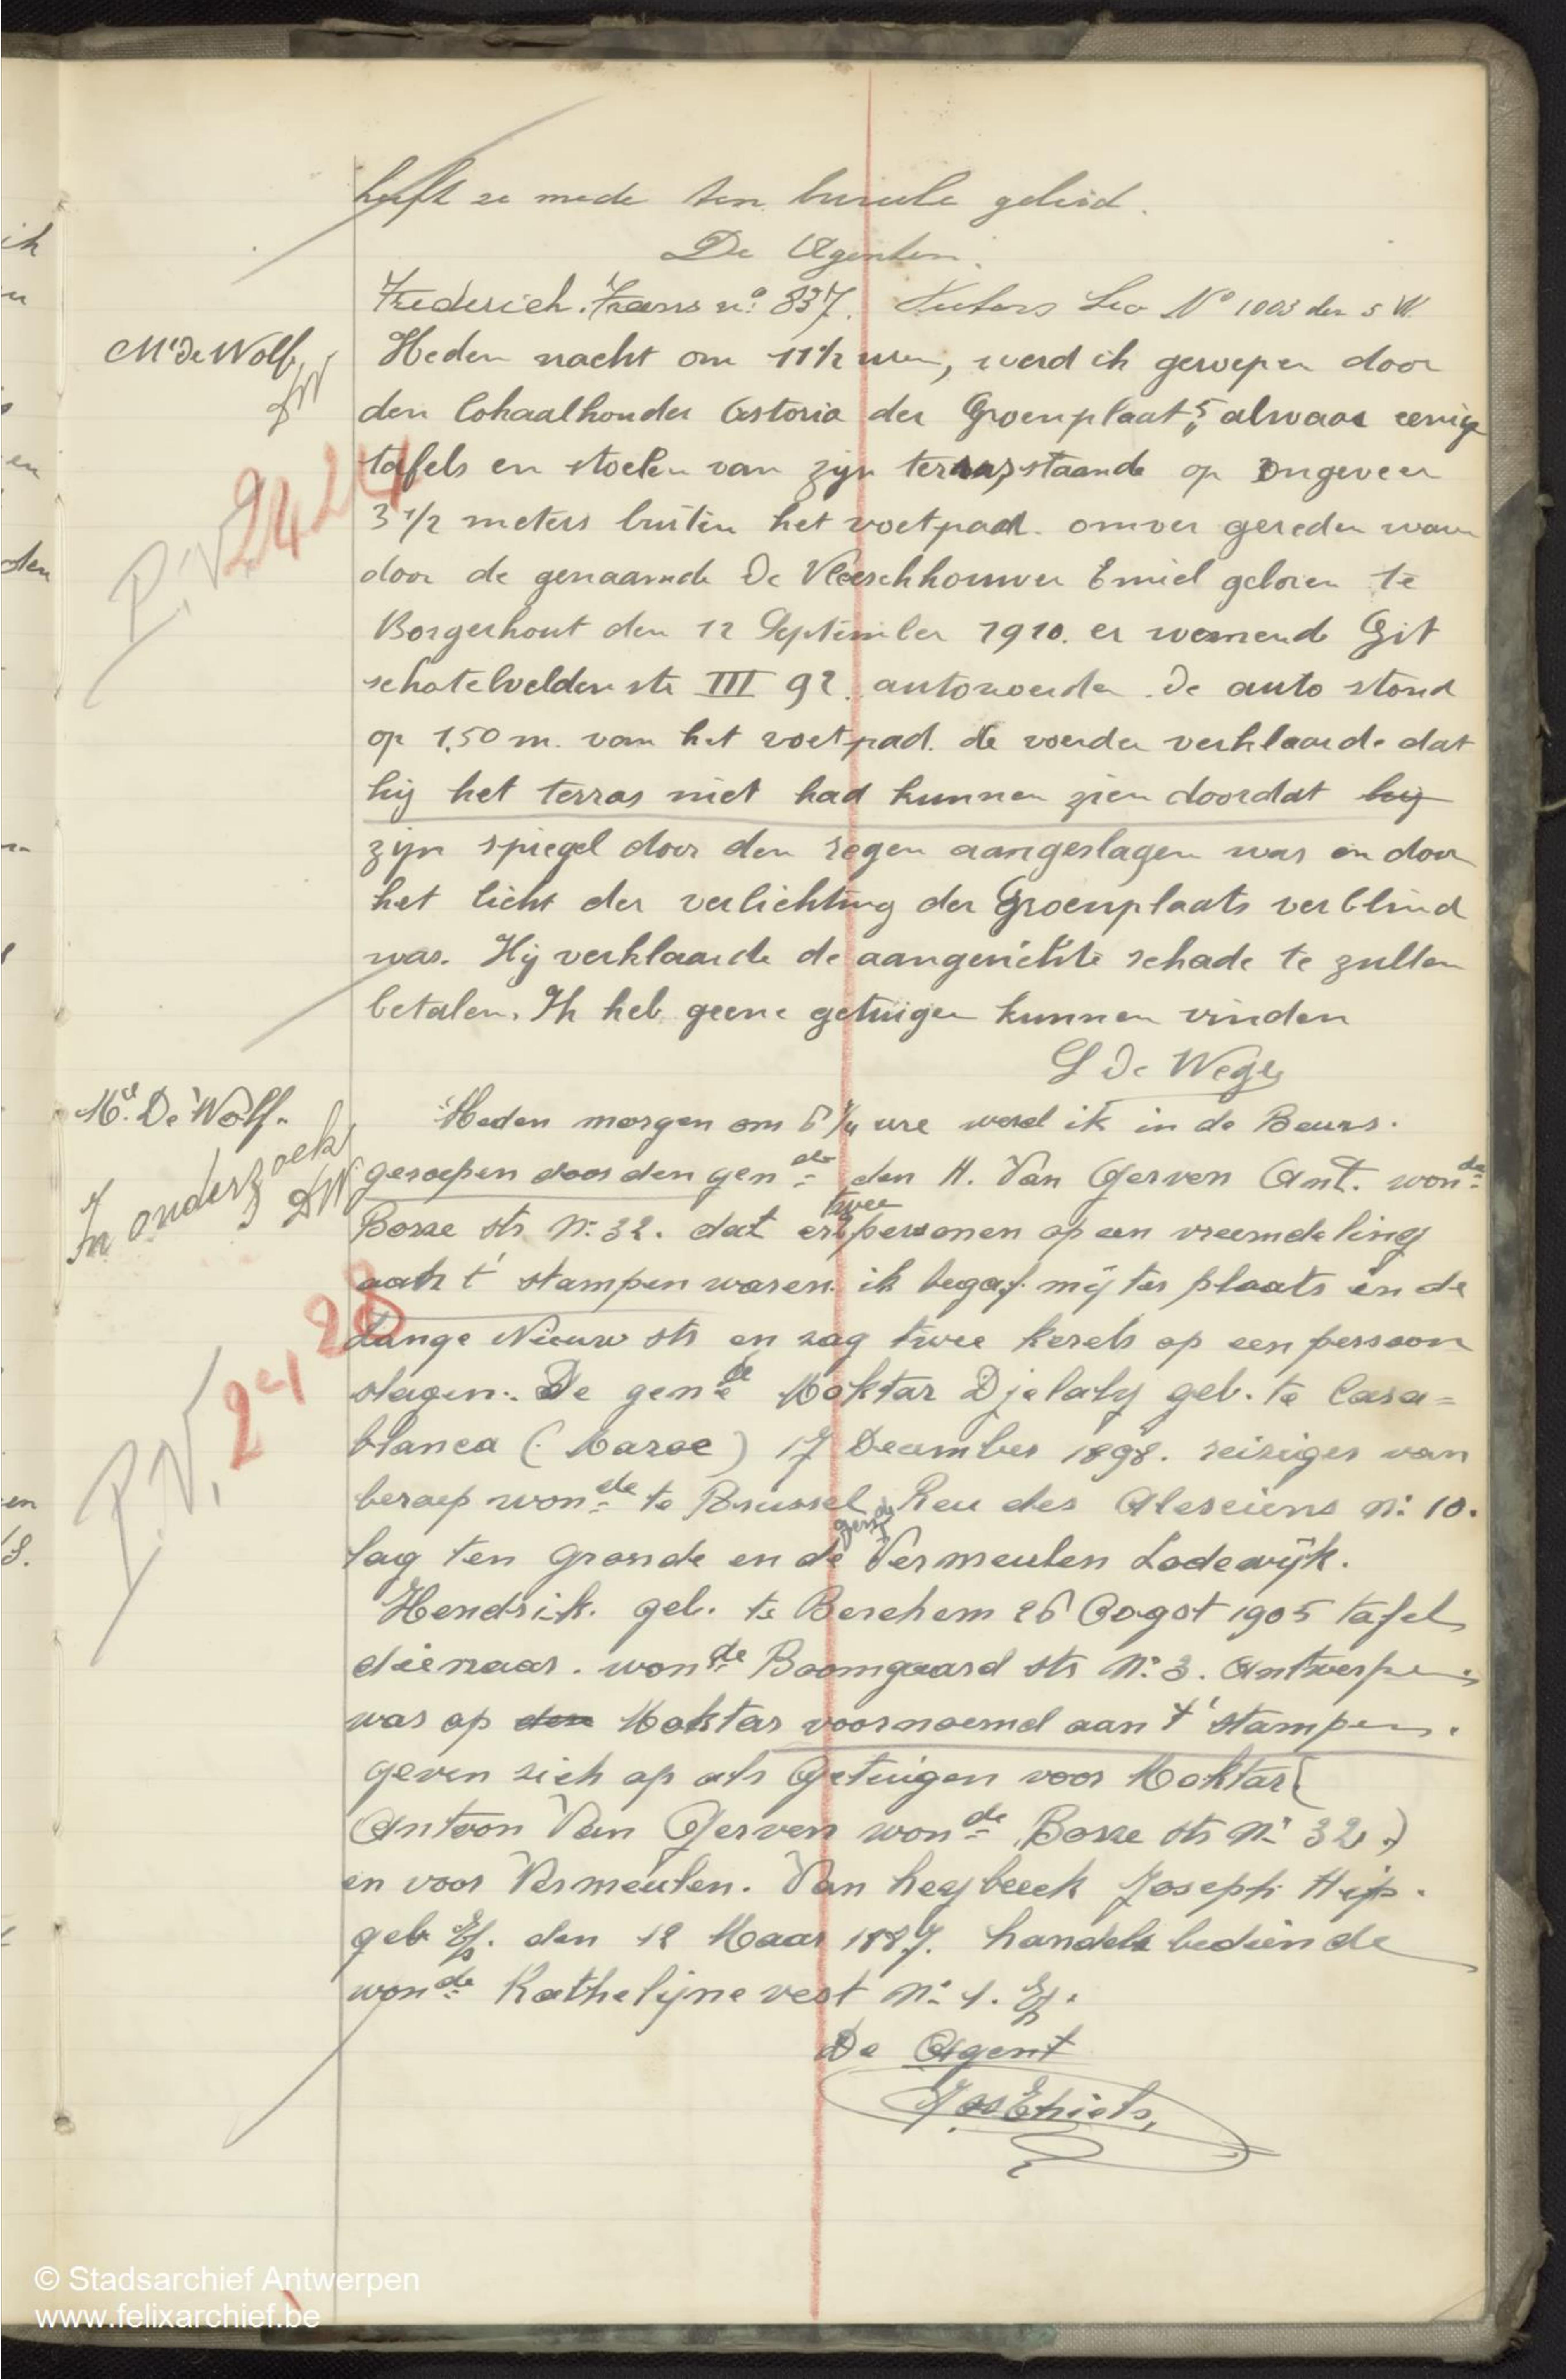 heeft ze mede ten bureele geleid.
De Agenten.
Frederich. Frans no. 837. Leo No 1003 der 5 W.
Mr De Wolf
DW
Heden nacht om 11 1/2 uren, werd ik geroepen door
den lokaalhouder Astoria der Groenplaats, 5 alwaar eenige
tafels en stoelen van zijn terras, staande op ongeveer
3 1/2 meters buiten het voetpad. omver gereden waren
door de genaamde De Vleeschhouwer Emiel geboren te
Borgerhout den 12 September 1910. er wonende Git
schotelvelden str III 92. autovoerder. De auto stond
op 1,50 m. van het voetpad. de voerder verklaarde dat
hij het terras niet had kunnen zien doordat hij
zijn spiegel door den regen aangeslagen was en door
het licht der verlichting der Groenplaats verblind
was. Hij verklaarde de aangerichte schade te zullen
betalen. Ik heb geene getuigen kunnen vinden
P.V. 2424
Mr. De Wolf.
In onderzoek
DW
Heden morgen om 6 1/4 ure werd ik in de Beurs.
geroepen door den gen de den H. Van Gerven Ant. won de
Borze str N: 32. dat er twee personen op een vreemdeling
aan t' stampen waren. ik begaf mij ter plaats in de
Lange Nieuw str en zag twee kerels op een persoon
slagen. De gen de Moktar Djelaly geb. te Casa=
blanca (Maroc) 17 December 1898. reiziger van
beroep won de te Brussel, Reu des Alexiens N: 10.
lag ten gronde en de gen de Vermeulen Lodewijk.
Hendrik. geb. te Berchem 26 Oogst 1905 tafel
dienaar. won de Boomgaard str N: 3. Antwerpen.
was op den Moktar voornoemd aan t' stampen.
geven zich op als Getuigen voor Moktar (
Antoon Van Gerven won de Borze str N: 32.)
en voor Vermeulen. Van heybeeck Joseph Hip.
geb. den 12 Maar 1887. handels bediende
won de Kathelijne vest N: 1.
De Agent
P.V. 2428
© Stadsarchief Antwerpen
www.felixarchief.be